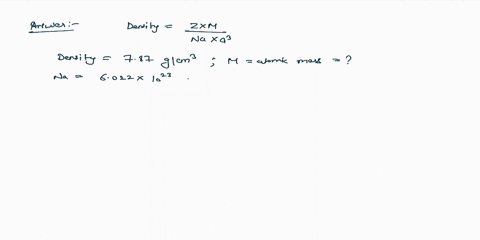 Answer:- Density = Z×M / Na × a³
Density = 7.87 g/cm³ ; M = atomic mass = ?
Na = 6.022 × 10²³